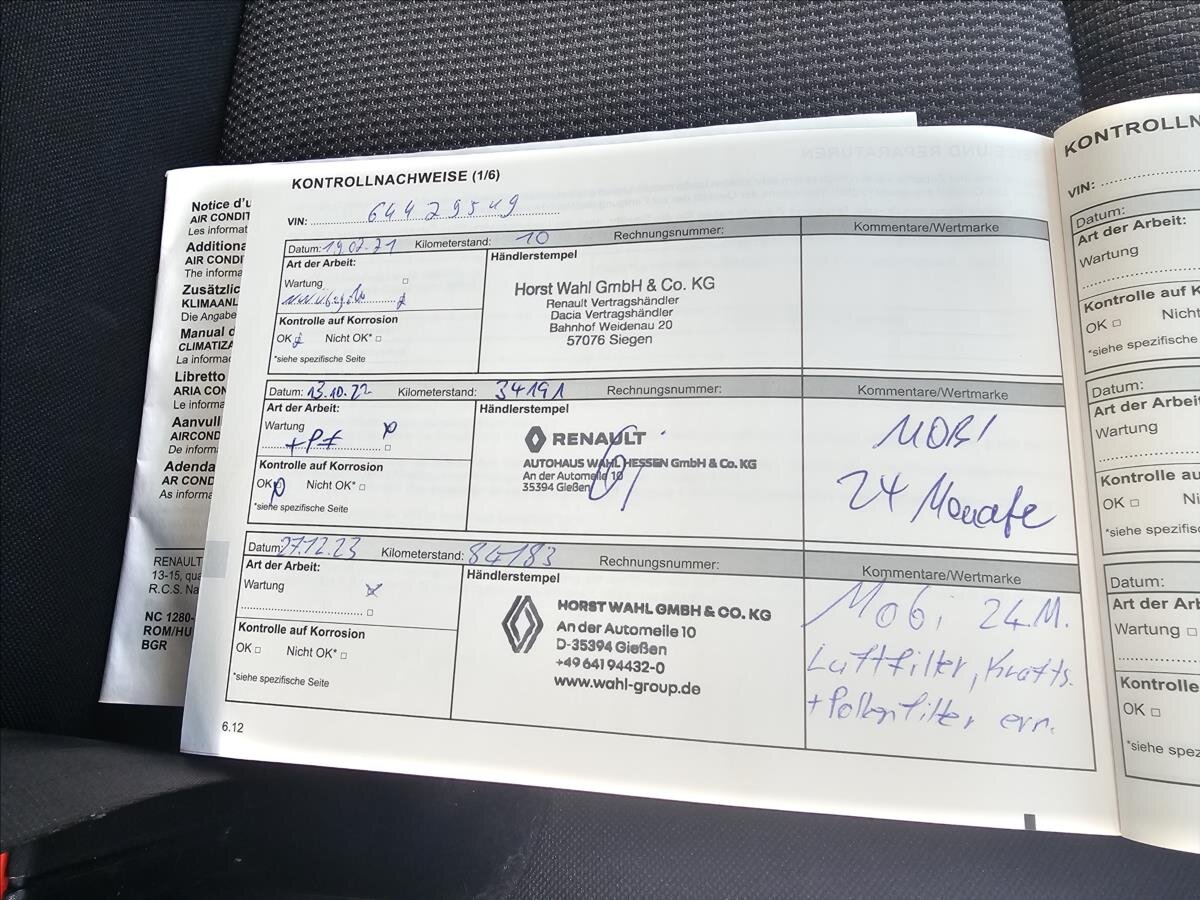 Notice d'u
AIR CONDIT
Les informat
Additiona
AIR CONDI
The informa
Zusätzlic
KLIMAANL
Die Angabe
Manual d
CLIMATIZA
La informac
Libretto
ARIA CON
Le informa
Aanvull
AIRCOND
De inform
Adenda
AR COND
As informa
RENAULT
13-15, qua
R.C.S. Na
NC 1280-
ROM/HU
BGR
KONTROLLNACHWEISE (1/6)
VIN: 64429549
Datum: 19.07.21 Kilometerstand: 10 Rechnungsnummer: Kommentare/Wertmarke
Art der Arbeit:
Wartung
Kontrolle auf Korrosion
OK Nicht OK*
*siehe spezifische Seite
Händlerstempel
Horst Wahl GmbH & Co. KG
Renault Vertragshändler
Dacia Vertragshändler
Bahnhof Weidenau 20
57076 Siegen
Datum: 13.10.22 Kilometerstand: 34191 Rechnungsnummer: Kommentare/Wertmarke
Art der Arbeit:
Wartung
Kontrolle auf Korrosion
OK Nicht OK*
*siehe spezifische Seite
Händlerstempel
RENAULT
AUTOHAUS WAHL HESSEN GmbH & Co. KG
An der Automeile 10
35394 Gießen
MOBI
24 Monate
Datum: 27.12.23 Kilometerstand: 84183 Rechnungsnummer: Kommentare/Wertmarke
Art der Arbeit:
Wartung
Kontrolle auf Korrosion
OK Nicht OK*
*siehe spezifische Seite
Händlerstempel
HORST WAHL GMBH & CO. KG
An der Automeile 10
D-35394 Gießen
+49 641 94432-0
www.wahl-group.de
Mobi 24 M.
Luftfilter, Krafts.
+ Pollenfilter ern.
6.12
KONTROLLN
VIN:
Datum:
Art der Arbeit:
Wartung
Kontrolle auf K
OK Nicht
*siehe spezifische
Datum:
Art der Arbei
Wartung
Kontrolle au
OK Ni
*siehe spezifisc
Datum:
Art der Arb
Wartung
Kontrolle
OK
*siehe spez